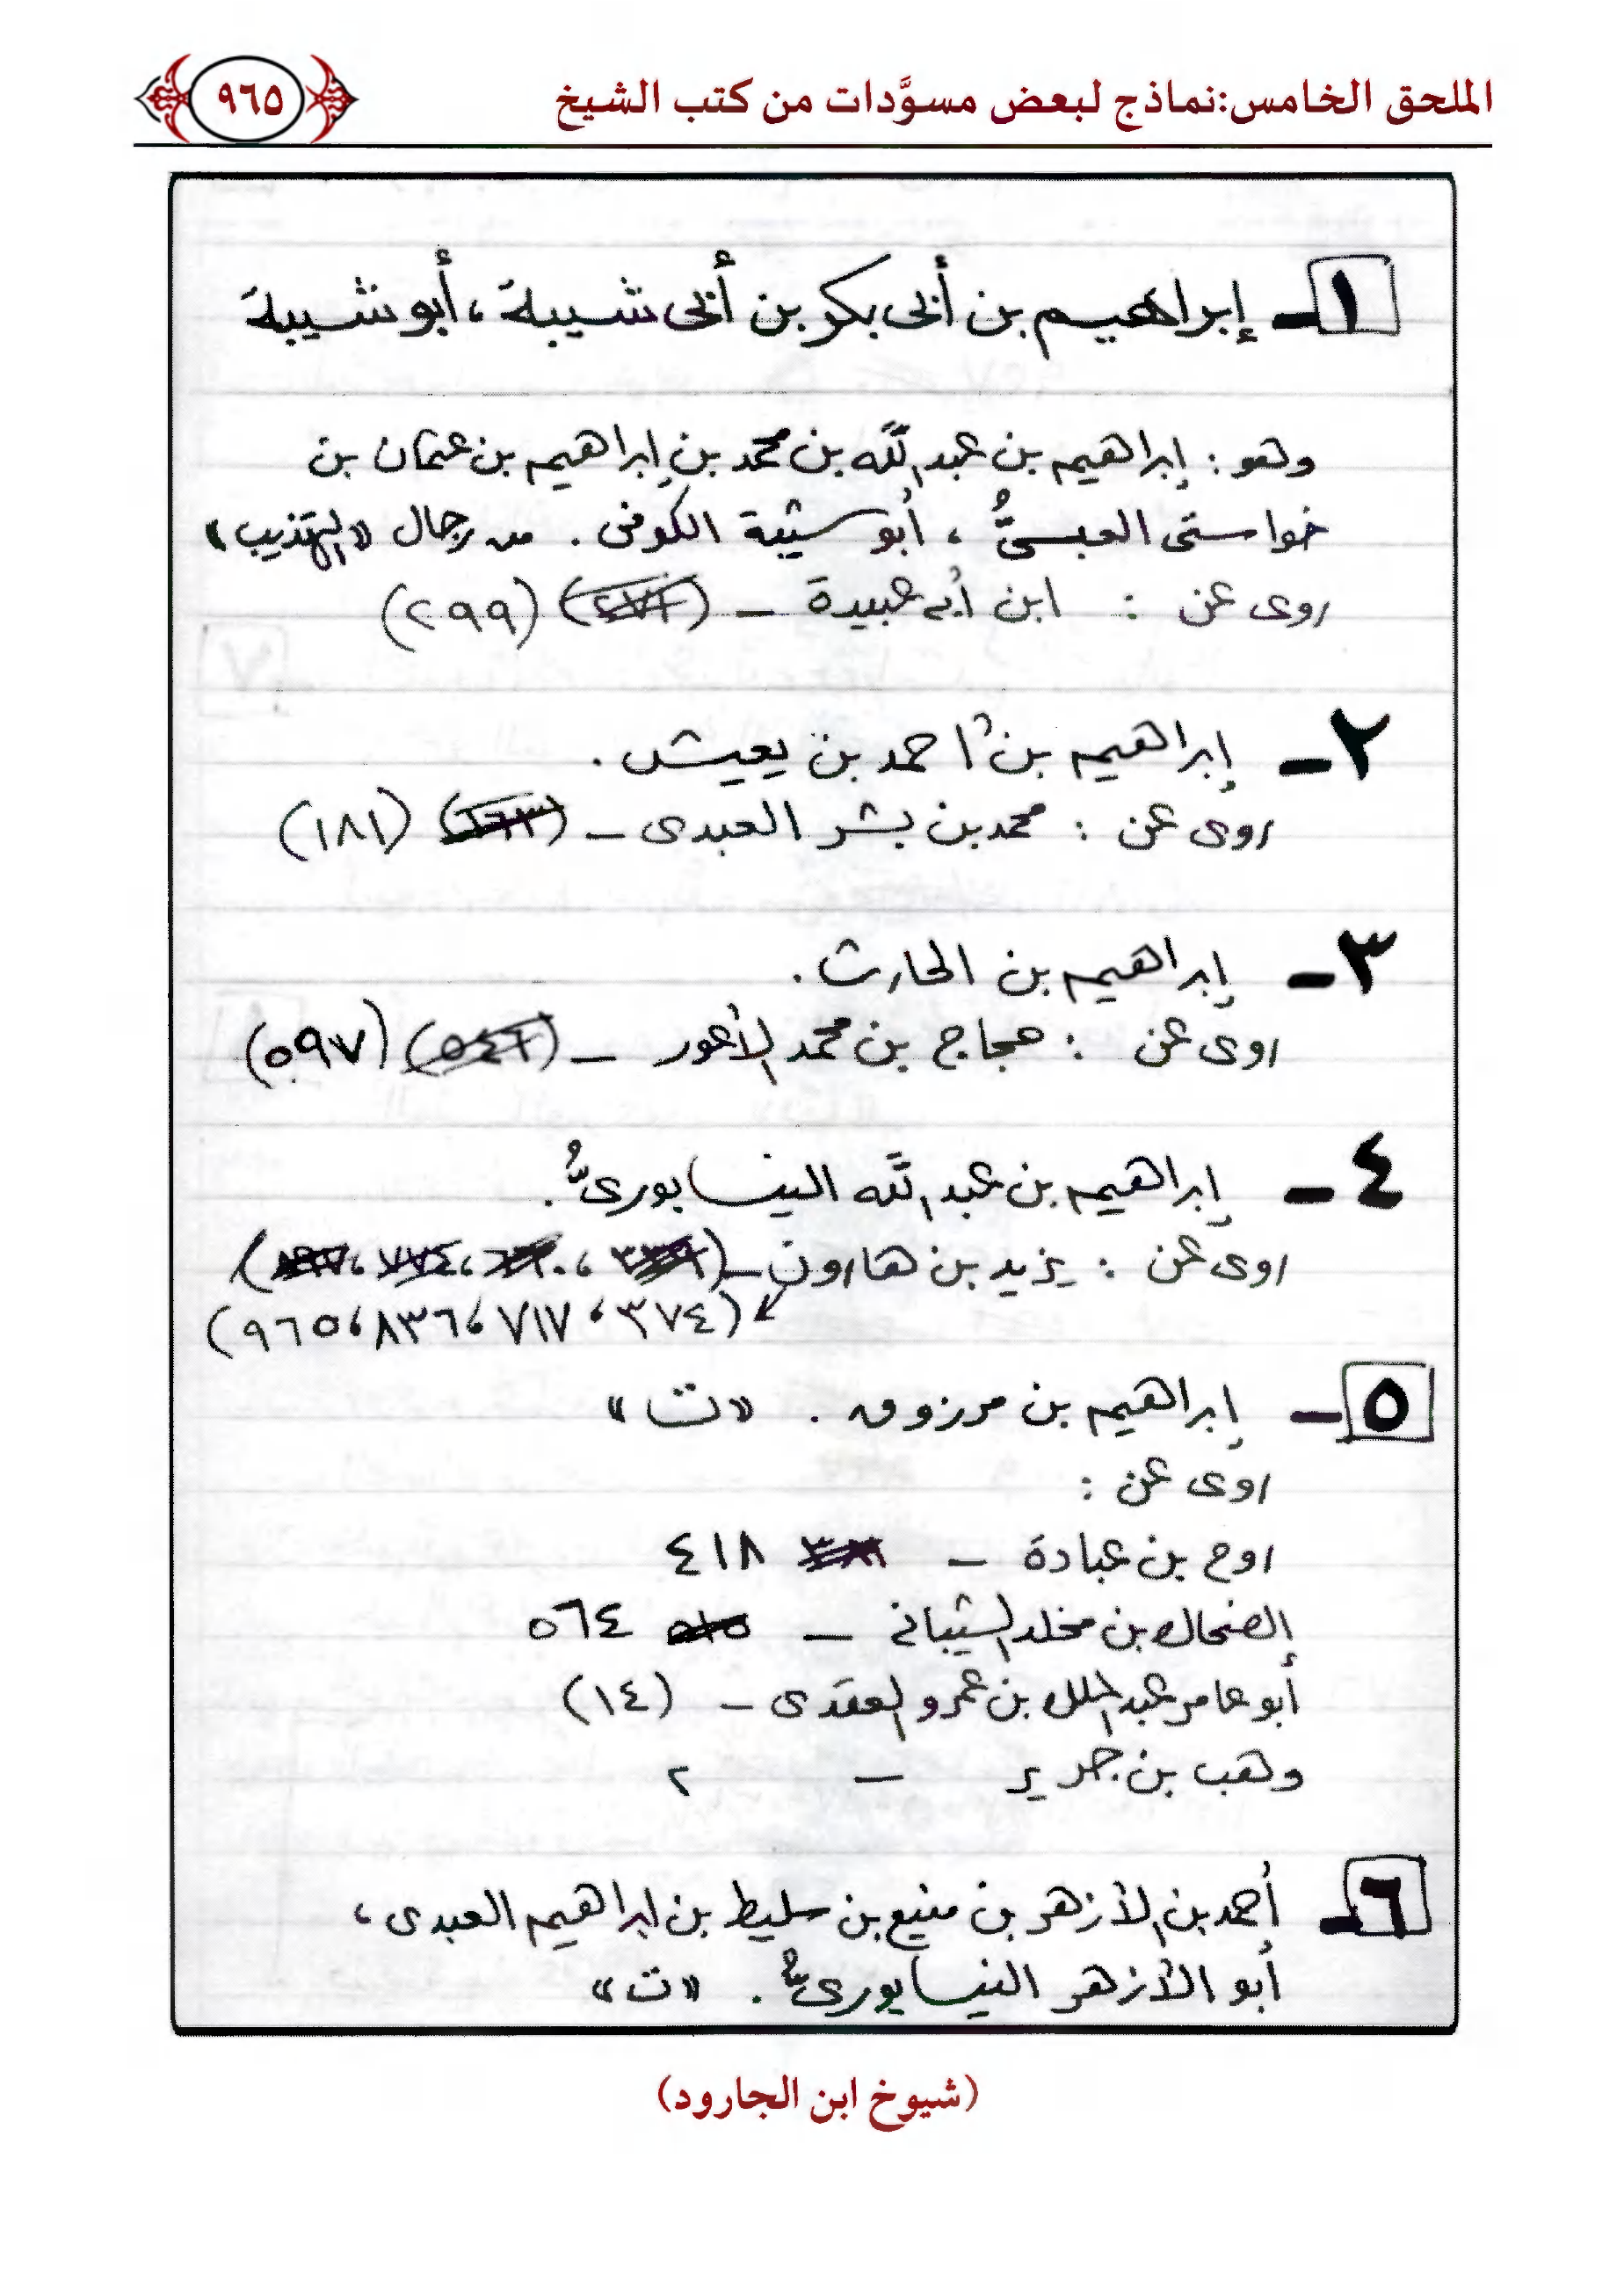 الملحق الخامس:نماذج لبعض مسوَّدات من كتب الشيخ
٩٦٥
١ـ إبراهيم بن أبى بكر بن أبى شيبة، أبو شيبة
وهو : إبراهيم بن عبد الله بن محمد بن إبراهيم بن عثمان بن
خواستى العبسىُّ ، أبو شيبة الكوفى . من رجال «التهذيب»
روى عن : ابن أبى عبيدة ـ (٢٩٩)
٢ـ إبراهيم بن أحمد بن يعيش .
روى عن : محمد بن بشر العبدى ـ (١٨١)
٣ـ إبراهيم بن الحارث .
روى عن : حجاج بن محمد الأعور ـ (٥٤٦) (٥٩٧)
٤ـ إبراهيم بن عبد الله النيسابورىُّ .
روى عن : يزيد بن هارون ـ
(٣٧٤، ٧١٧، ٨٣٦، ٩٦٥)
٥ـ إبراهيم بن مرزوق . «ت»
روى عن :
روح بن عبادة ـ ٤١٨
الضحاك بن مخلد الشيبانى ـ ٥٦٤
أبو عامر عبد الملك بن عمرو العقدى ـ (١٤)
وهب بن جرير ـ ٢
٦ـ أحمد بن الأزهر بن منيع بن سليط بن إبراهيم العبدى ،
أبو الأزهر النيسابورىُّ . «ت»
(شيوخ ابن الجارود)